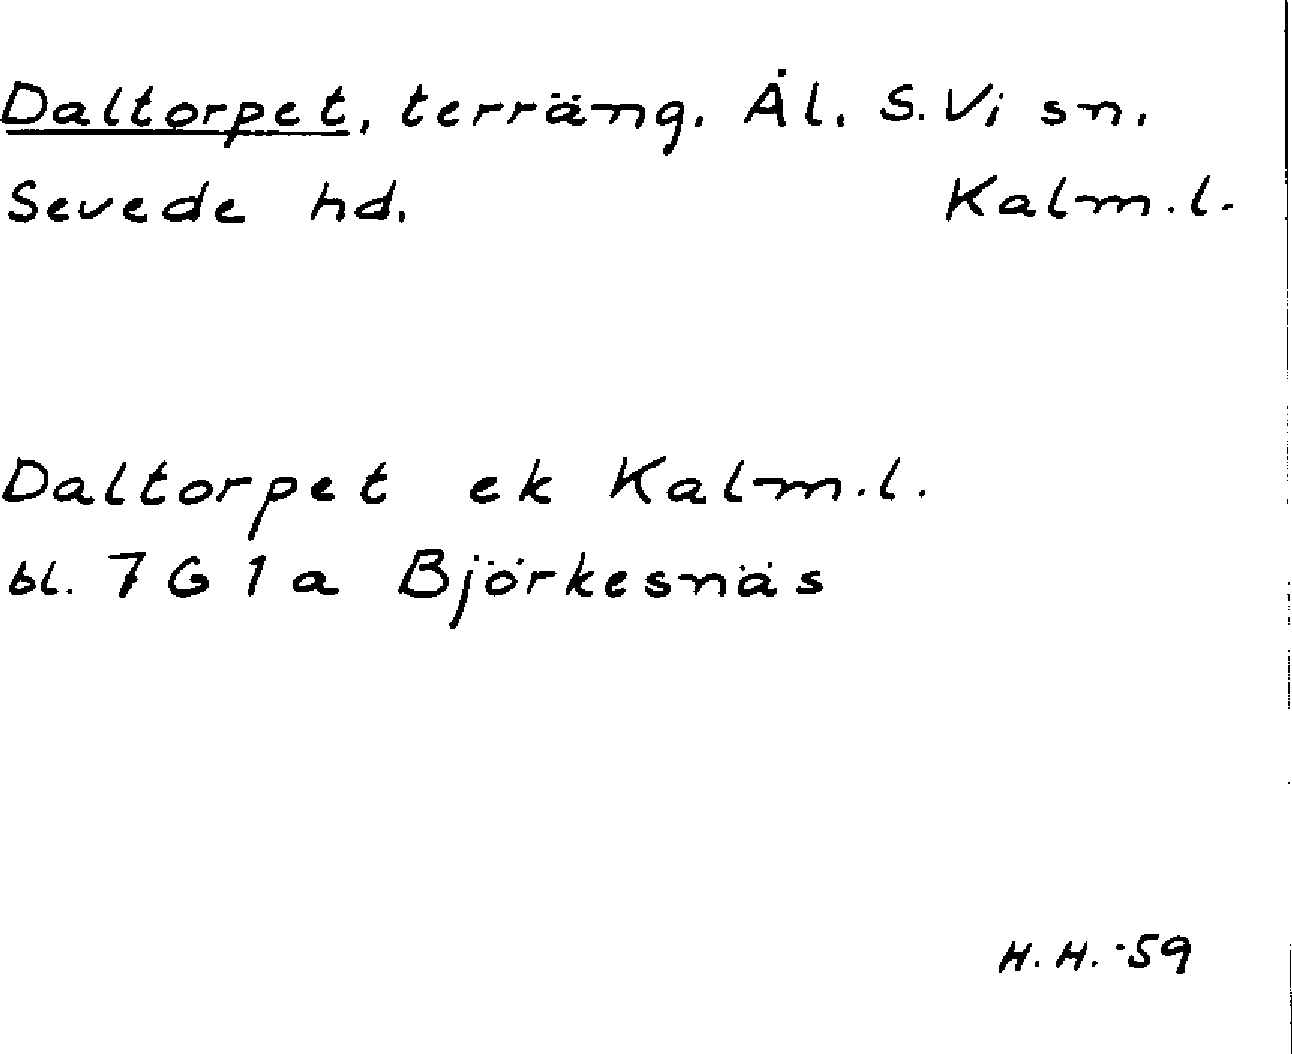 Daltorpet, terräng. Ål. S. Vi sn.
Sevede hd. Kalm. l.
Daltorpet ek Kalm. l.
bl. 7 G 1 a Björkesnäs
H. H. -59